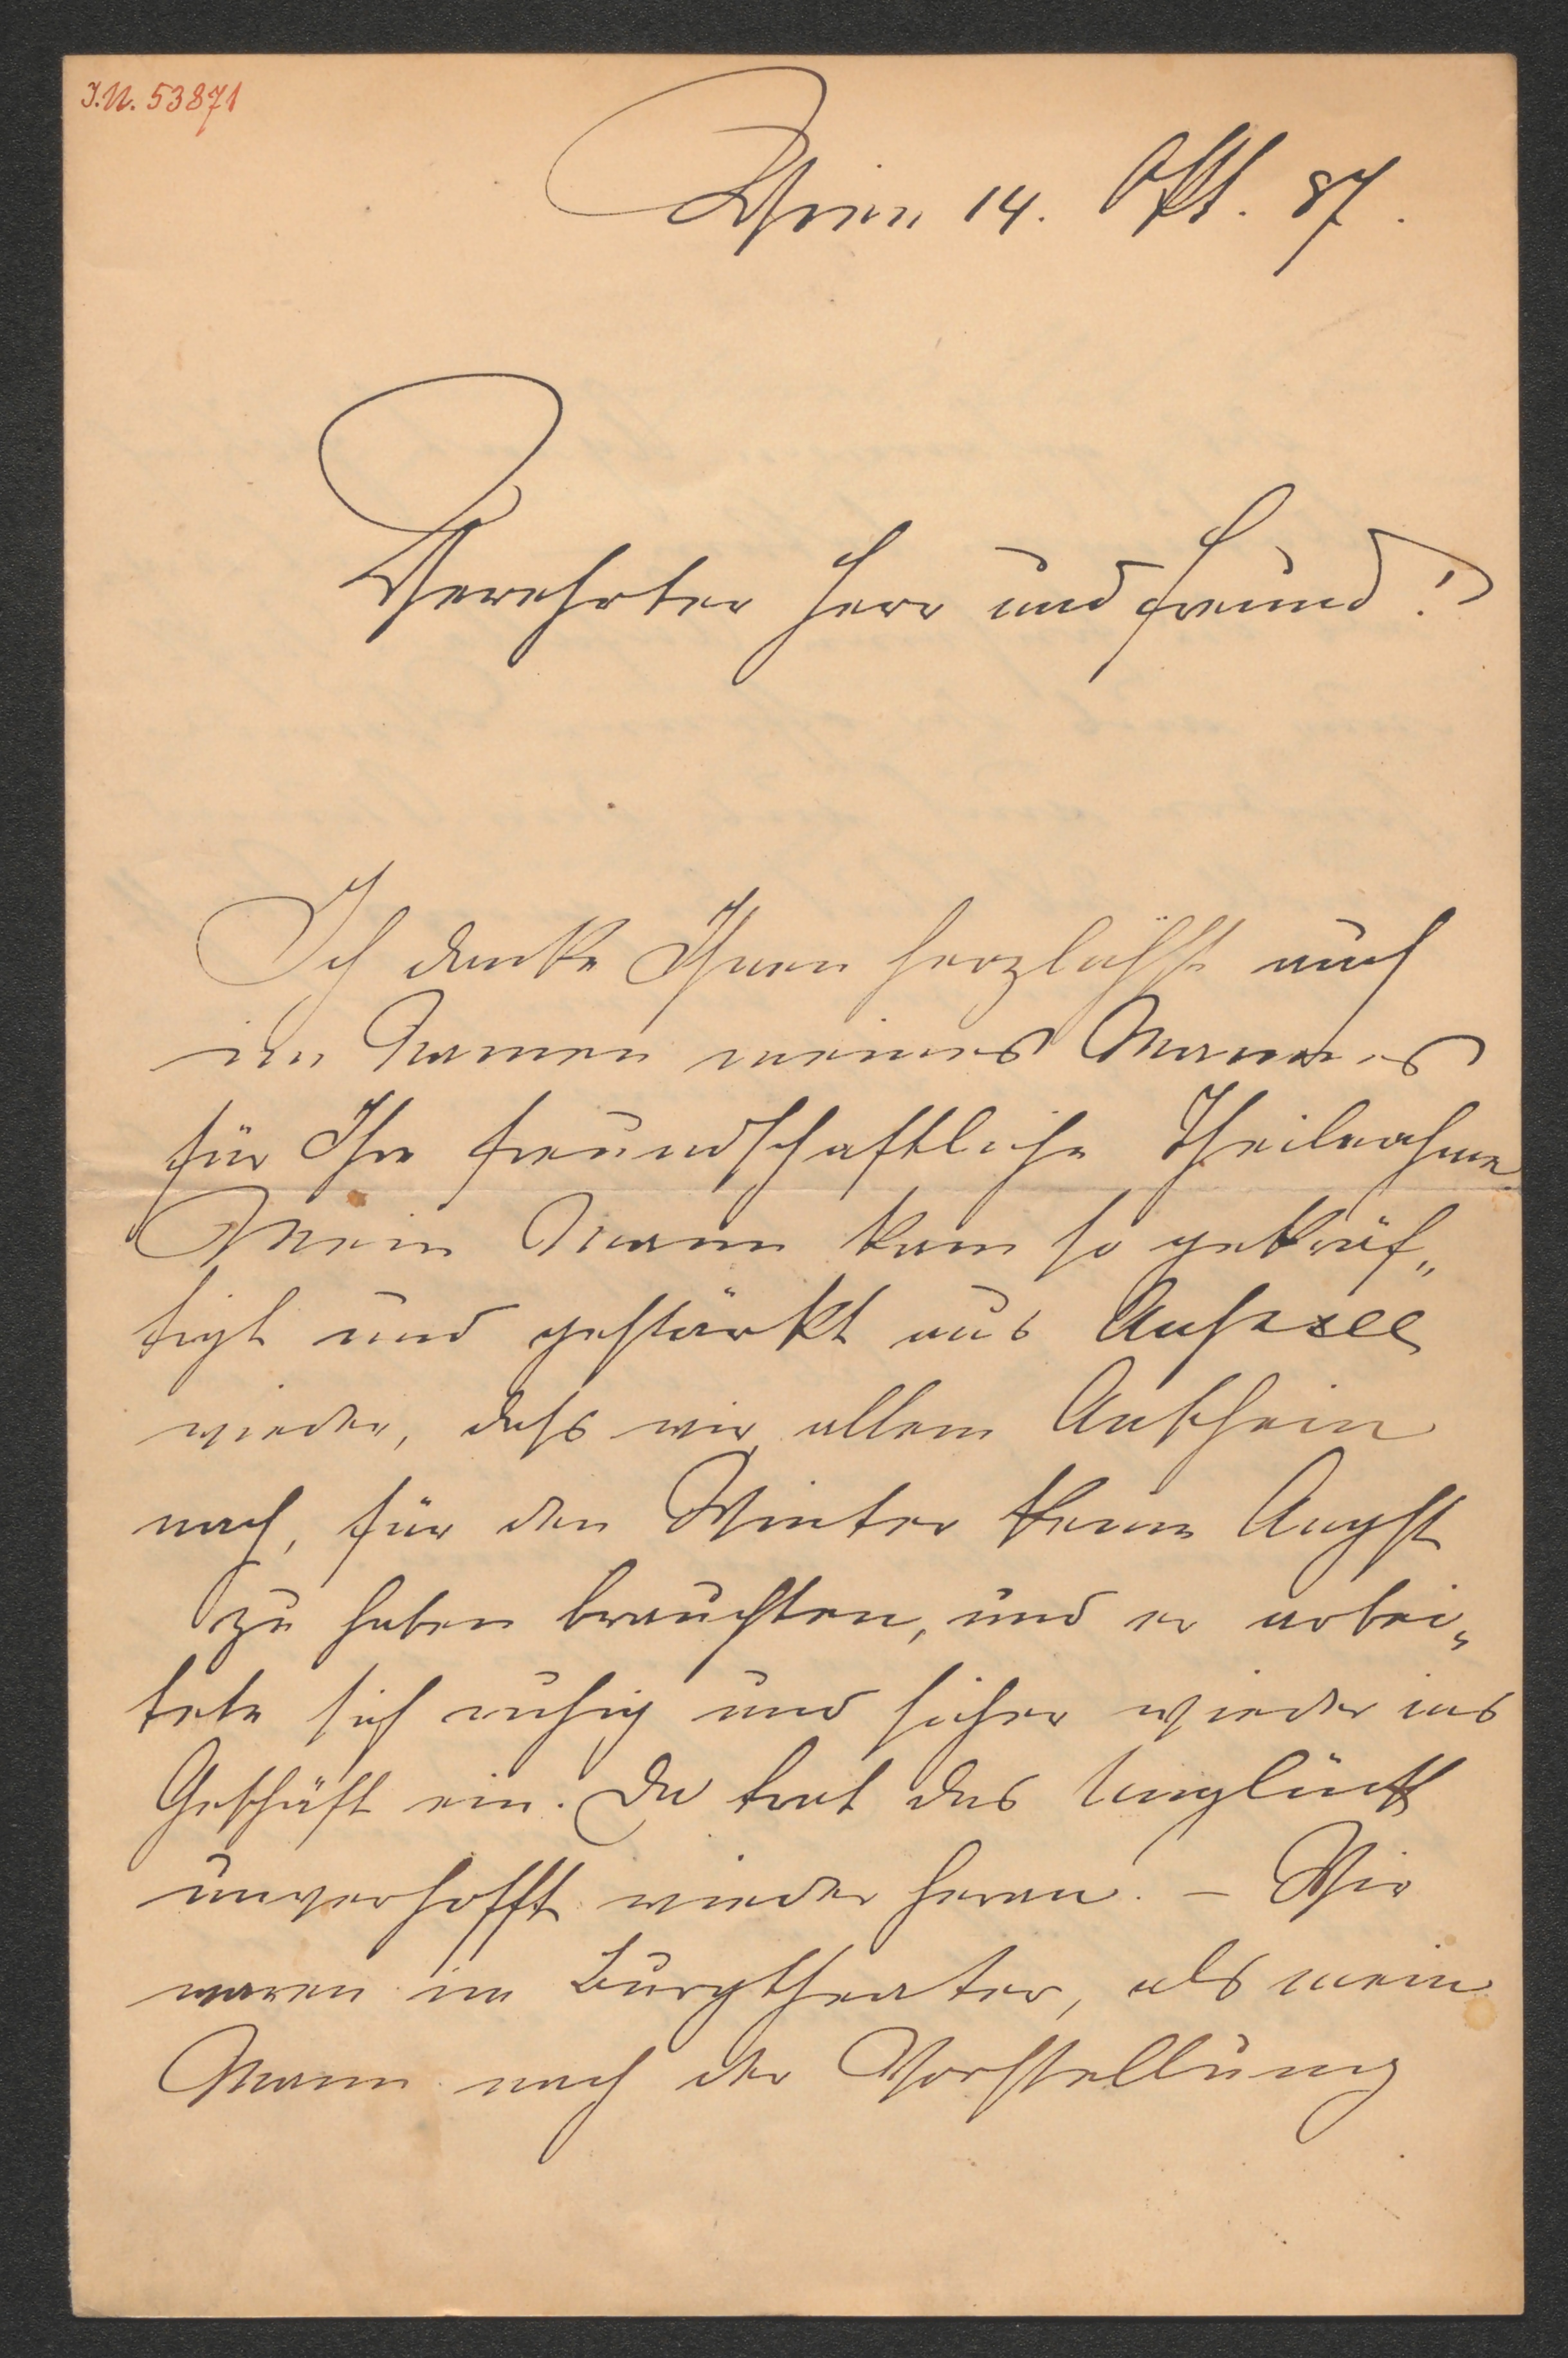 I.N. 53871
Wien 14. Okt. 87.
Verehrter Herr und Freund!
Ich danke Ihnen herzlichst auch
im Namen meines Mannes
für Ihre freundschaftliche Theilnahme.
Mein Mann kam so gekräf„
tigt und gestärkt aus Aussee
wieder, daß wir allem Anschein
nach, für den Winter keine Angst
zu haben brauchten, und er arbei„
tete sich ruhig und sicher wieder ins
Geschäft ein. Da trat das Unglück
unverhofft wieder heran. – Wir
waren im Burgtheater, als mein
Mann nach der Vorstellung